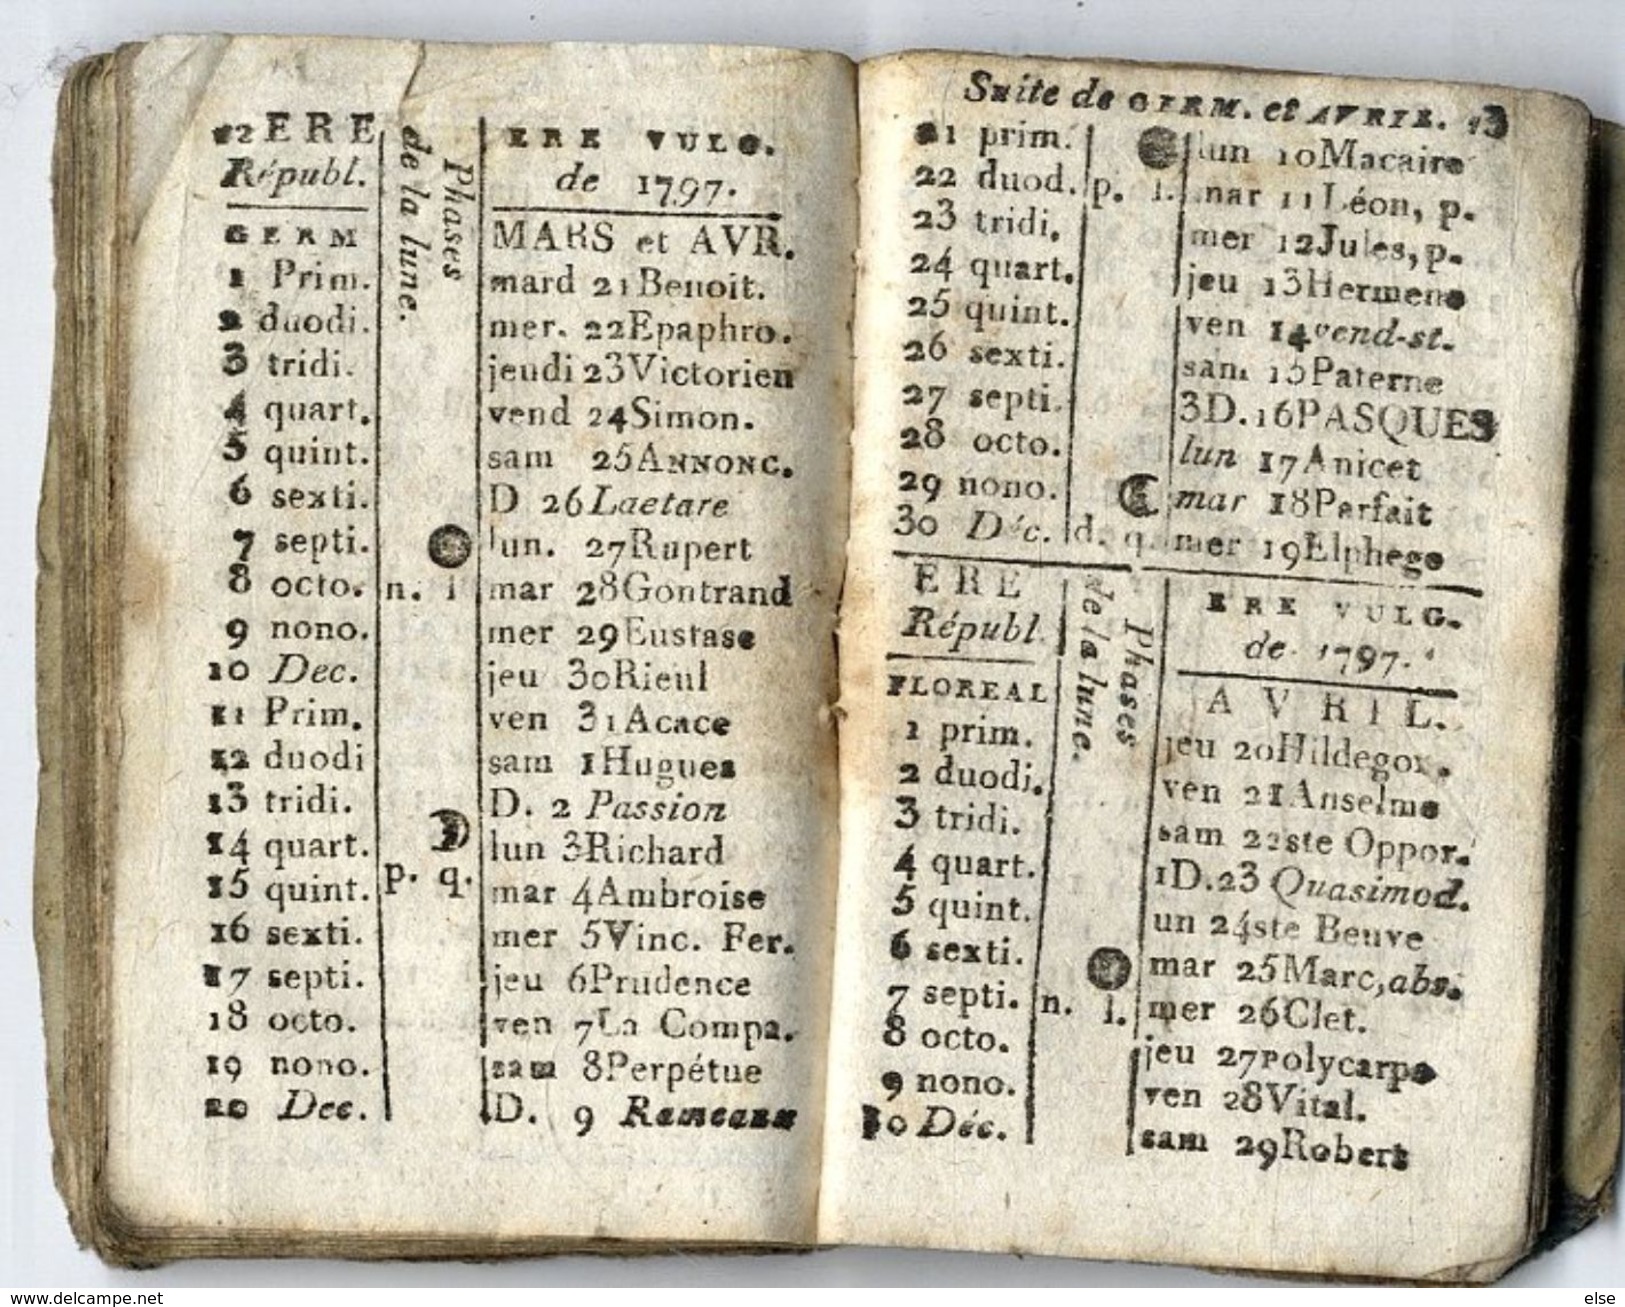 12 ERE
Républ.
Phases de la lune.
ERE VULG.
de 1797.
GERM
MARS et AVR.
1 Prim. mard 21 Benoit.
2 duodi. mer. 22 Epaphro.
3 tridi. jeudi 23 Victorien
4 quart. vend 24 Simon.
5 quint. sam 25 ANNONC.
6 sexti. D 26 Laetare
7 septi. lun. 27 Rupert
8 octo. n. l mar 28 Gontrand
9 nono. mer 29 Eustase
10 Dec. jeu 30 Rieul
11 Prim. ven 31 Acace
12 duodi sam 1 Hugues
13 tridi. D. 2 Passion
14 quart. lun 3 Richard
15 quint. p. q. mar 4 Ambroise
16 sexti. mer 5 Vinc. Fer.
17 septi. jeu 6 Prudence
18 octo. ven 7 La Compa.
19 nono. sam 8 Perpétue
20 Dec. D. 9 Rameaux
Suite de GERM. et AVRIL. 13
21 prim. lun 10 Macaire
22 duod. p. l. mar 11 Léon, p.
23 tridi. mer 12 Jules, p.
24 quart. jeu 13 Hermene
25 quint. ven 14 vend-st.
26 sexti. sam 15 Paterne
27 septi. 3D. 16 PASQUES
28 octo. lun 17 Anicet
29 nono. mar 18 Parfait
30 Déc. d. q. mer 19 Elphege
ERE
Républ.
Phases de la lune.
ERE VULG.
de 1797.
FLOREAL
AVRIL.
1 prim. jeu 20 Hildegor.
2 duodi. ven 21 Anselme
3 tridi. sam 22 ste Oppor.
4 quart. 1D. 23 Quasimod.
5 quint. un 24 ste Beuve
6 sexti. mar 25 Marc, abs.
7 septi. n. l. mer 26 Clet.
8 octo. jeu 27 Polycarpe
9 nono. ven 28 Vital.
10 Déc. sam 29 Robert
www.delcampe.net
else